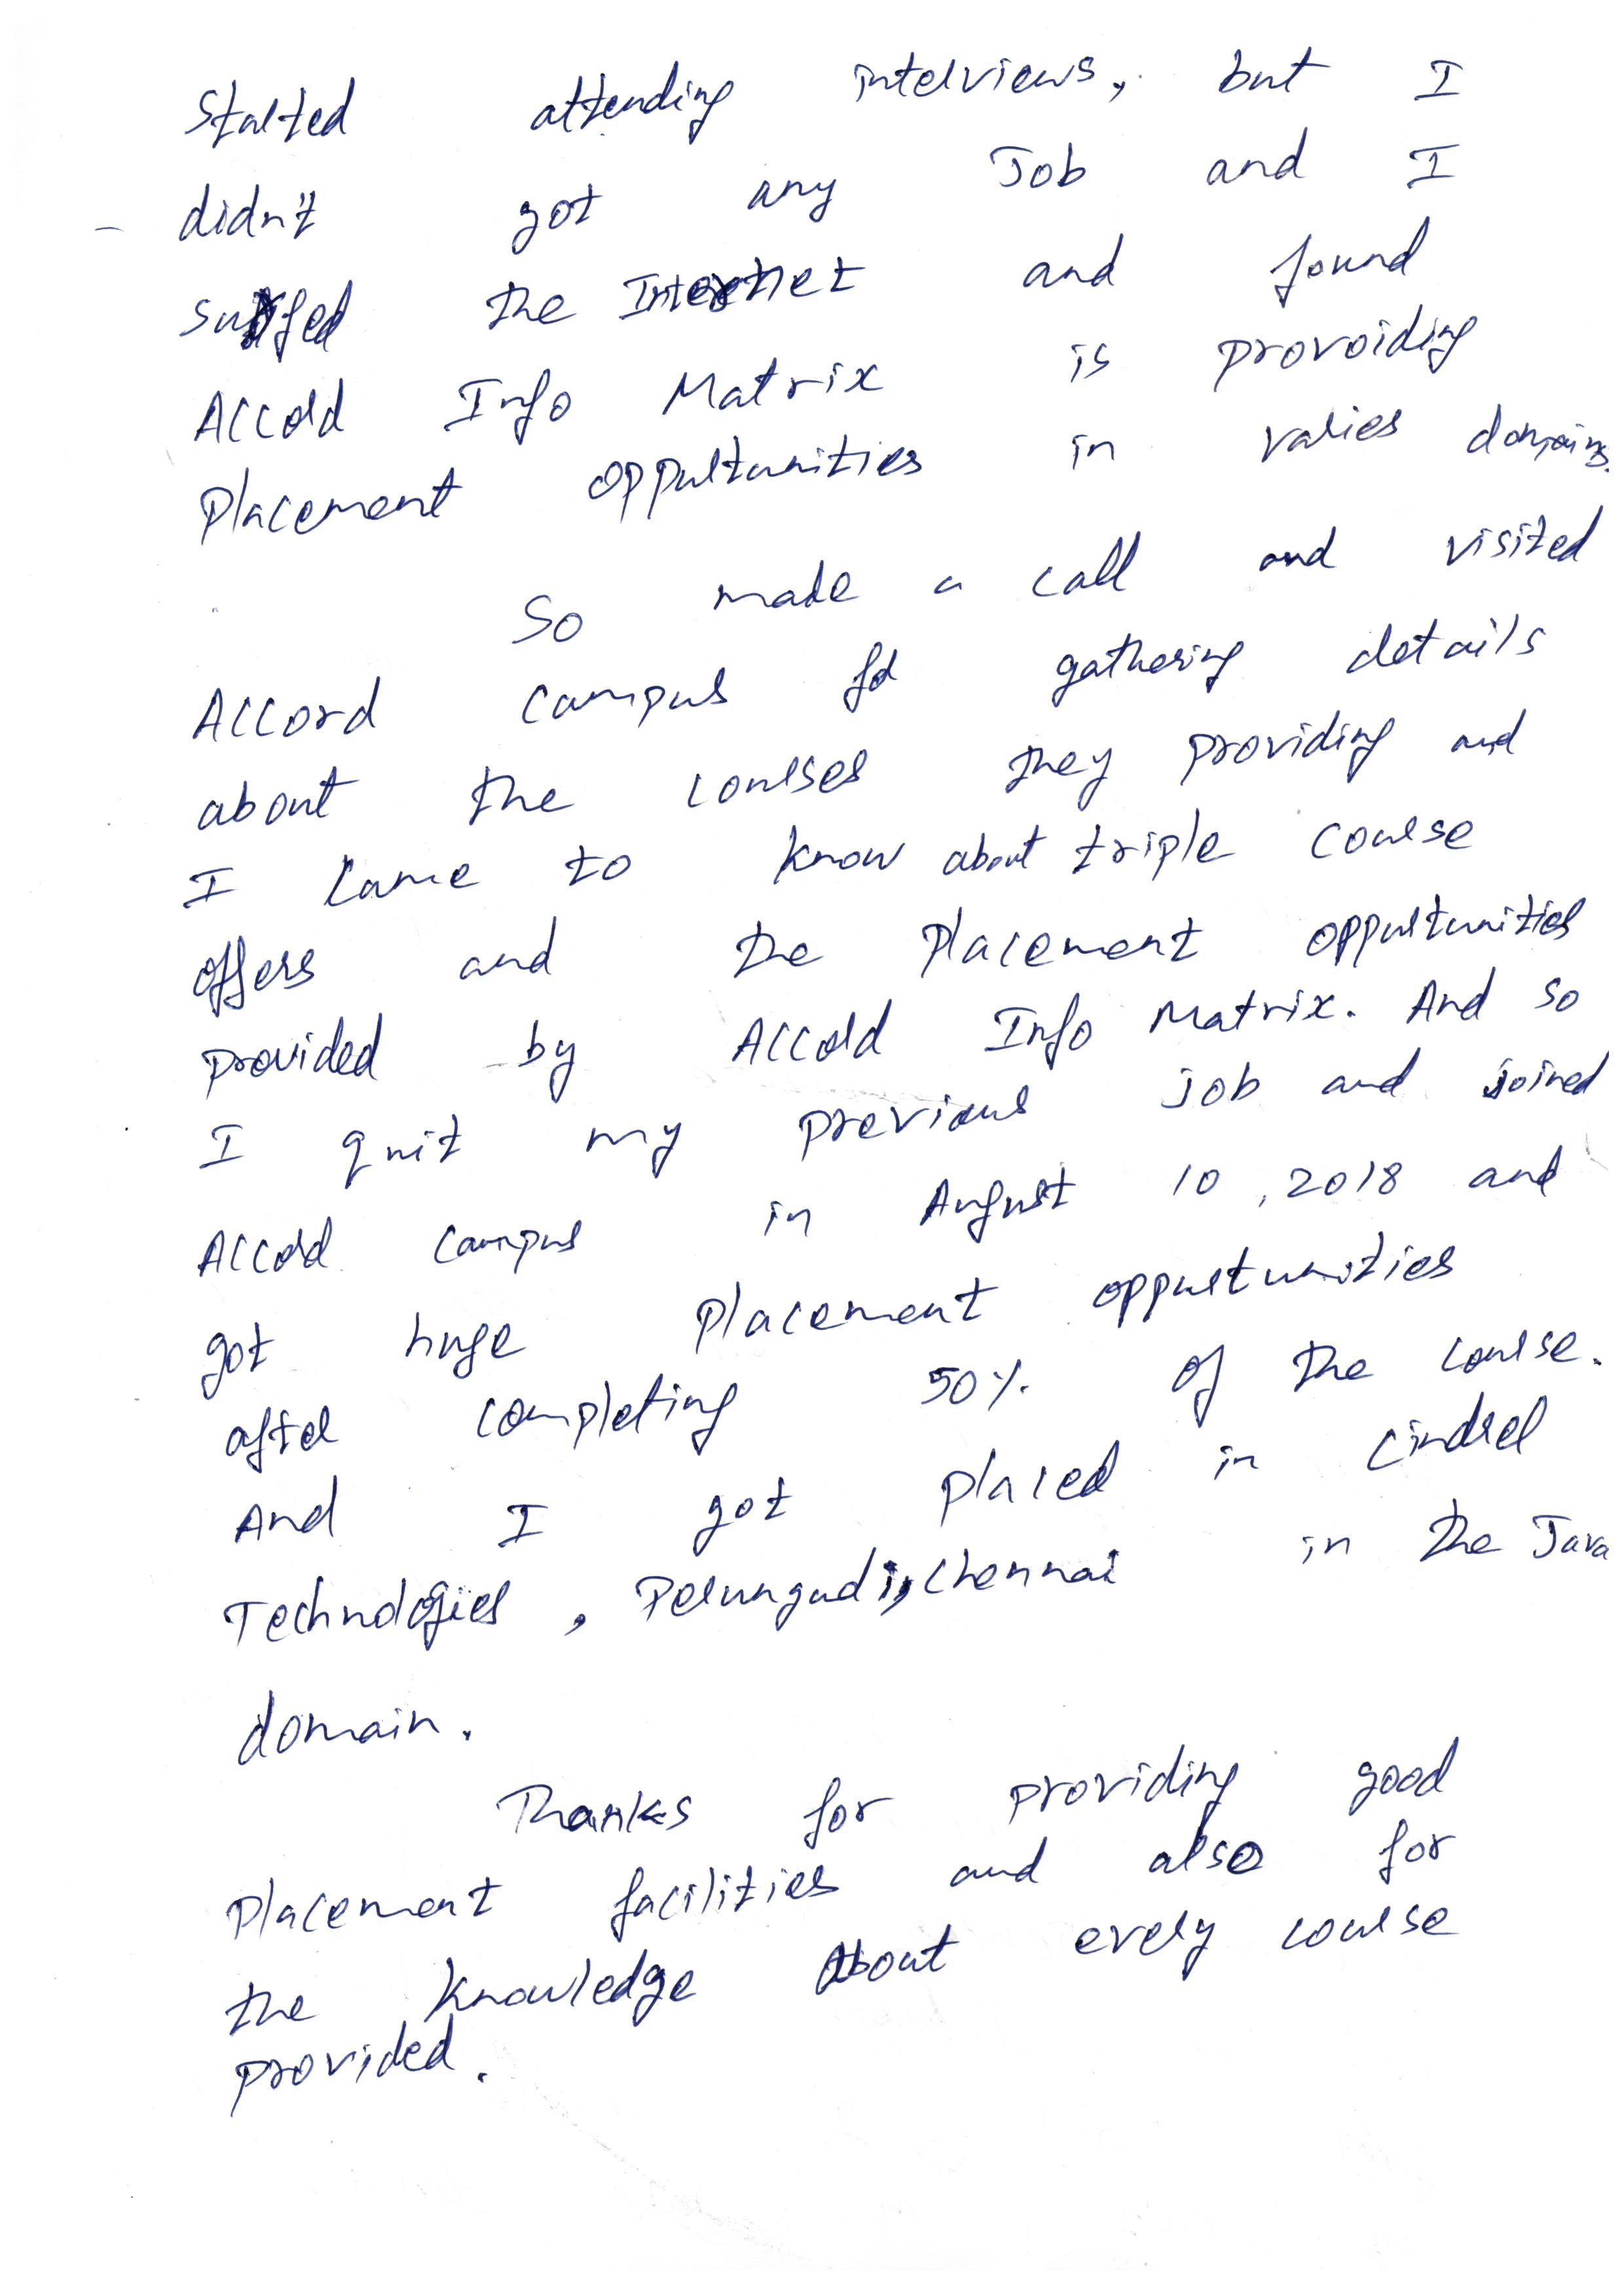 Started attending interviews, but I
didn't got any Job and I
surfed the Internet and found
Accord Info Matrix is provoiding
Placement oppurtunities in varies domains.
So made a call and visited
Accord campus for gathering details
about the courses they providing and
I came to know about triple course
offers and the Placement oppurtunities
provided by Accord Info Matrix. And so
I quit my previous job and joined
Accord campus in August 10, 2018 and
got huge Placement oppurtunities
after completing 50% of the course.
And I got placed in Cindrel
Technologies, Perungudi, Chennai in the Java
domain.
Thanks for providing good
Placement facilities and also for
the knowledge About every course
provided.